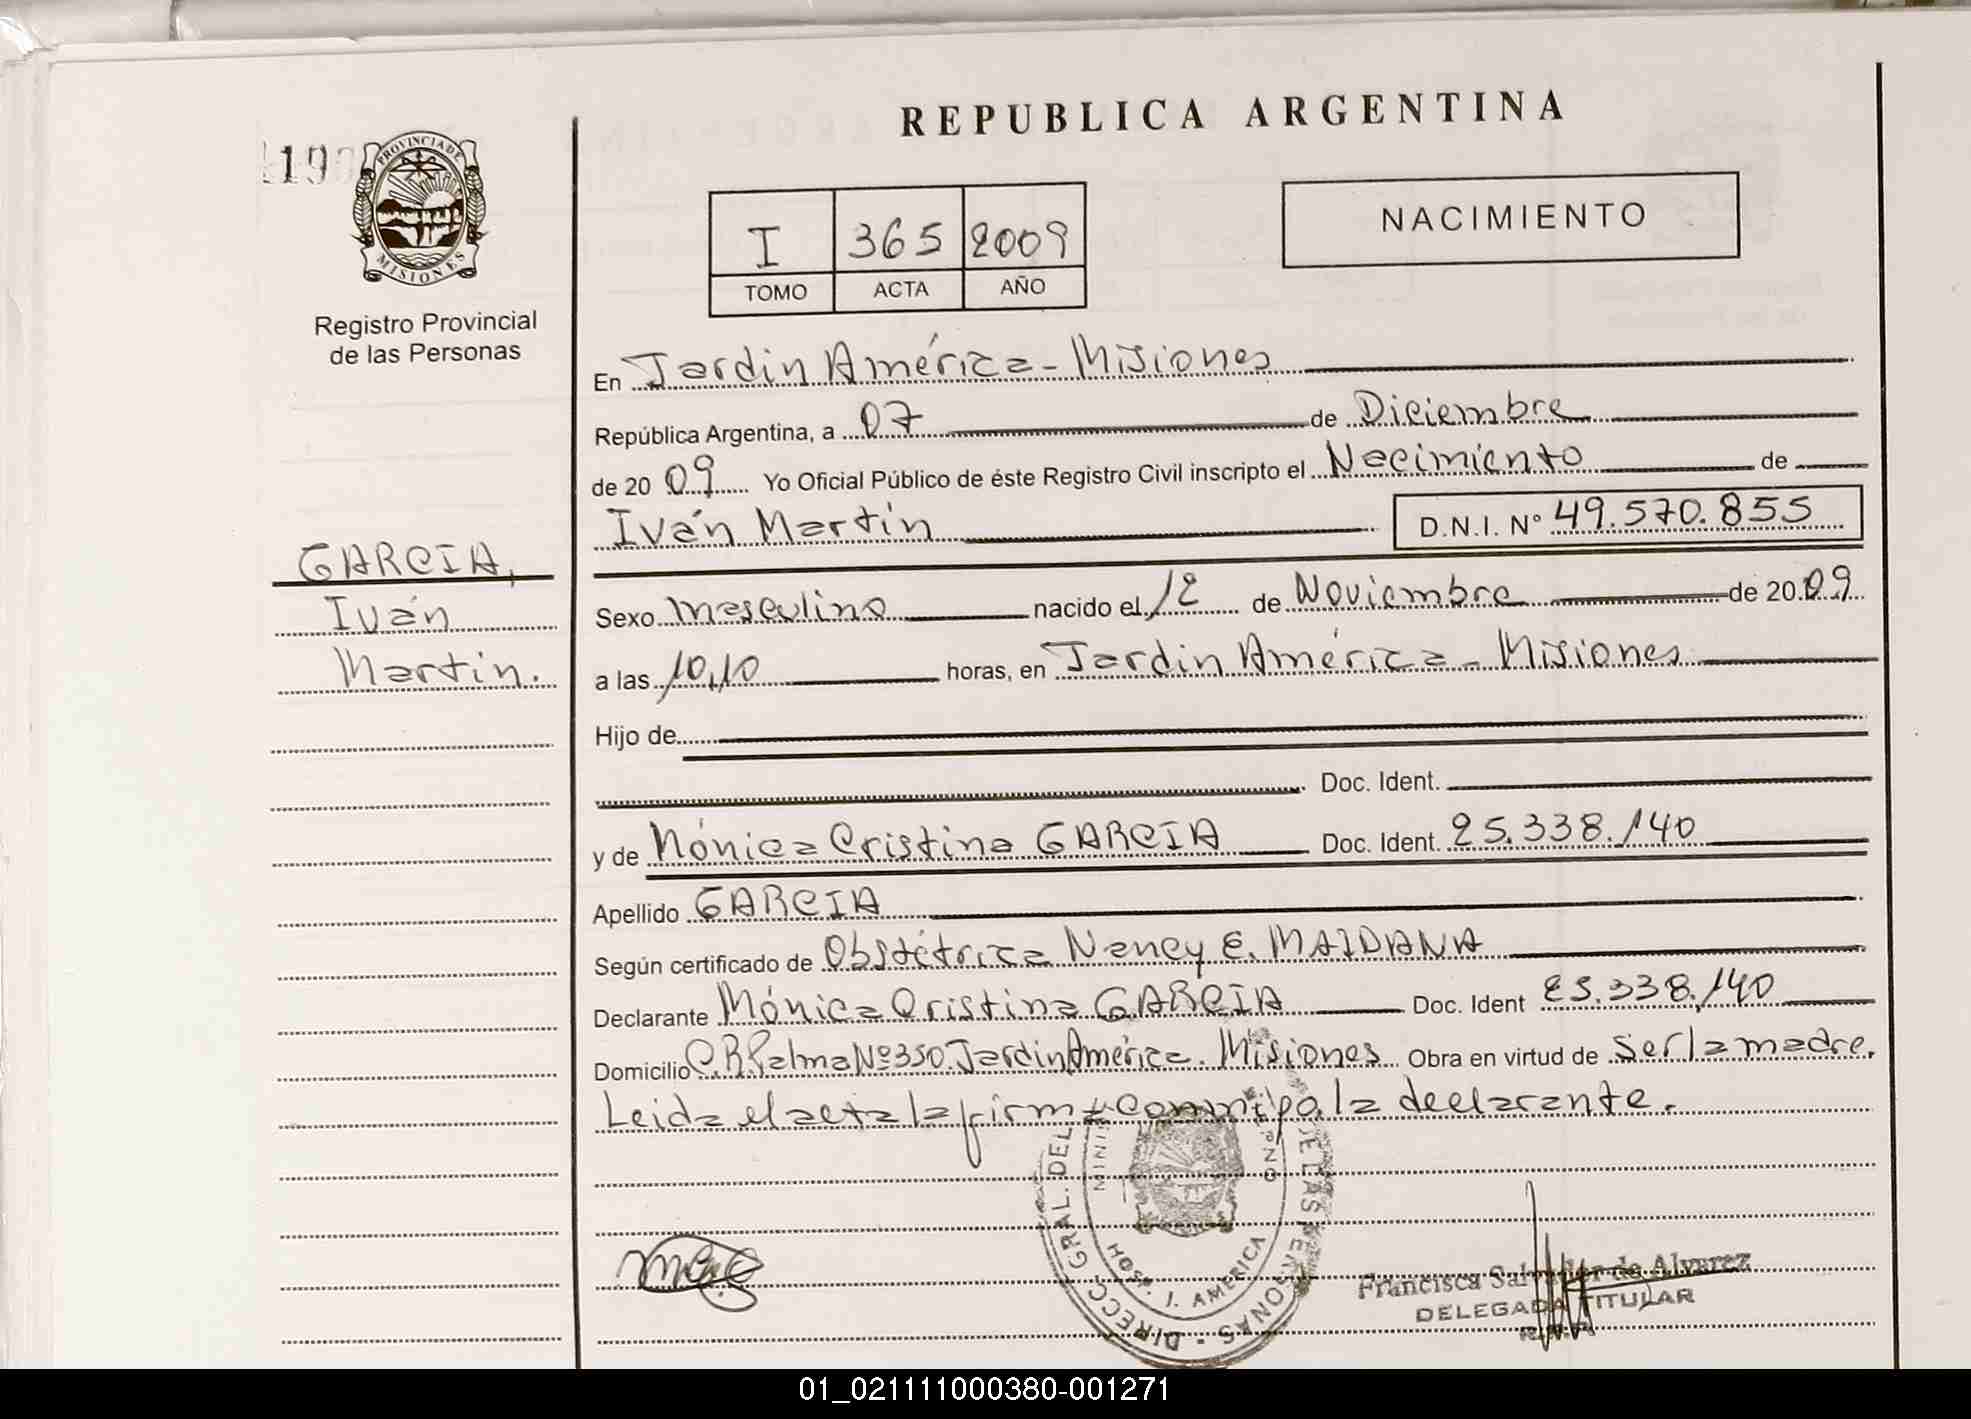 REPUBLICA ARGENTINA
19
PROVINCIA DE MISIONES
Registro Provincial
de las Personas
I 365 2009
TOMO ACTA AÑO
NACIMIENTO
En Jardin América - Misiones
República Argentina, a 07 de Diciembre
de 2009 Yo Oficial Público de éste Registro Civil inscripto el Nacimiento de
Iván Martín D.N.I. N° 49.570.855
GARCIA,
Iván
Martín.
Sexo masculino nacido el 12 de Noviembre de 2009
a las 10,10 horas, en Jardin América - Misiones
Hijo de
Doc. Ident.
y de Mónica Cristina GARCIA Doc. Ident. 25.338.140
Apellido GARCIA
Según certificado de Obstétrica Nancy E. MAIDANA
Declarante Mónica Cristina GARCIA Doc. Ident 25.338.140
Domicilio C.R. Palma Nº 350. Jardin América. Misiones Obra en virtud de ser la madre.
Leida el acta la firma conmigo la declarante.
DIRECC. GRAL. DEL DE LAS PERSONAS
HOSP. J. AMERICA
Francisca Salvador de Alvarez
DELEGADA TITULAR
01_021111000380-001271